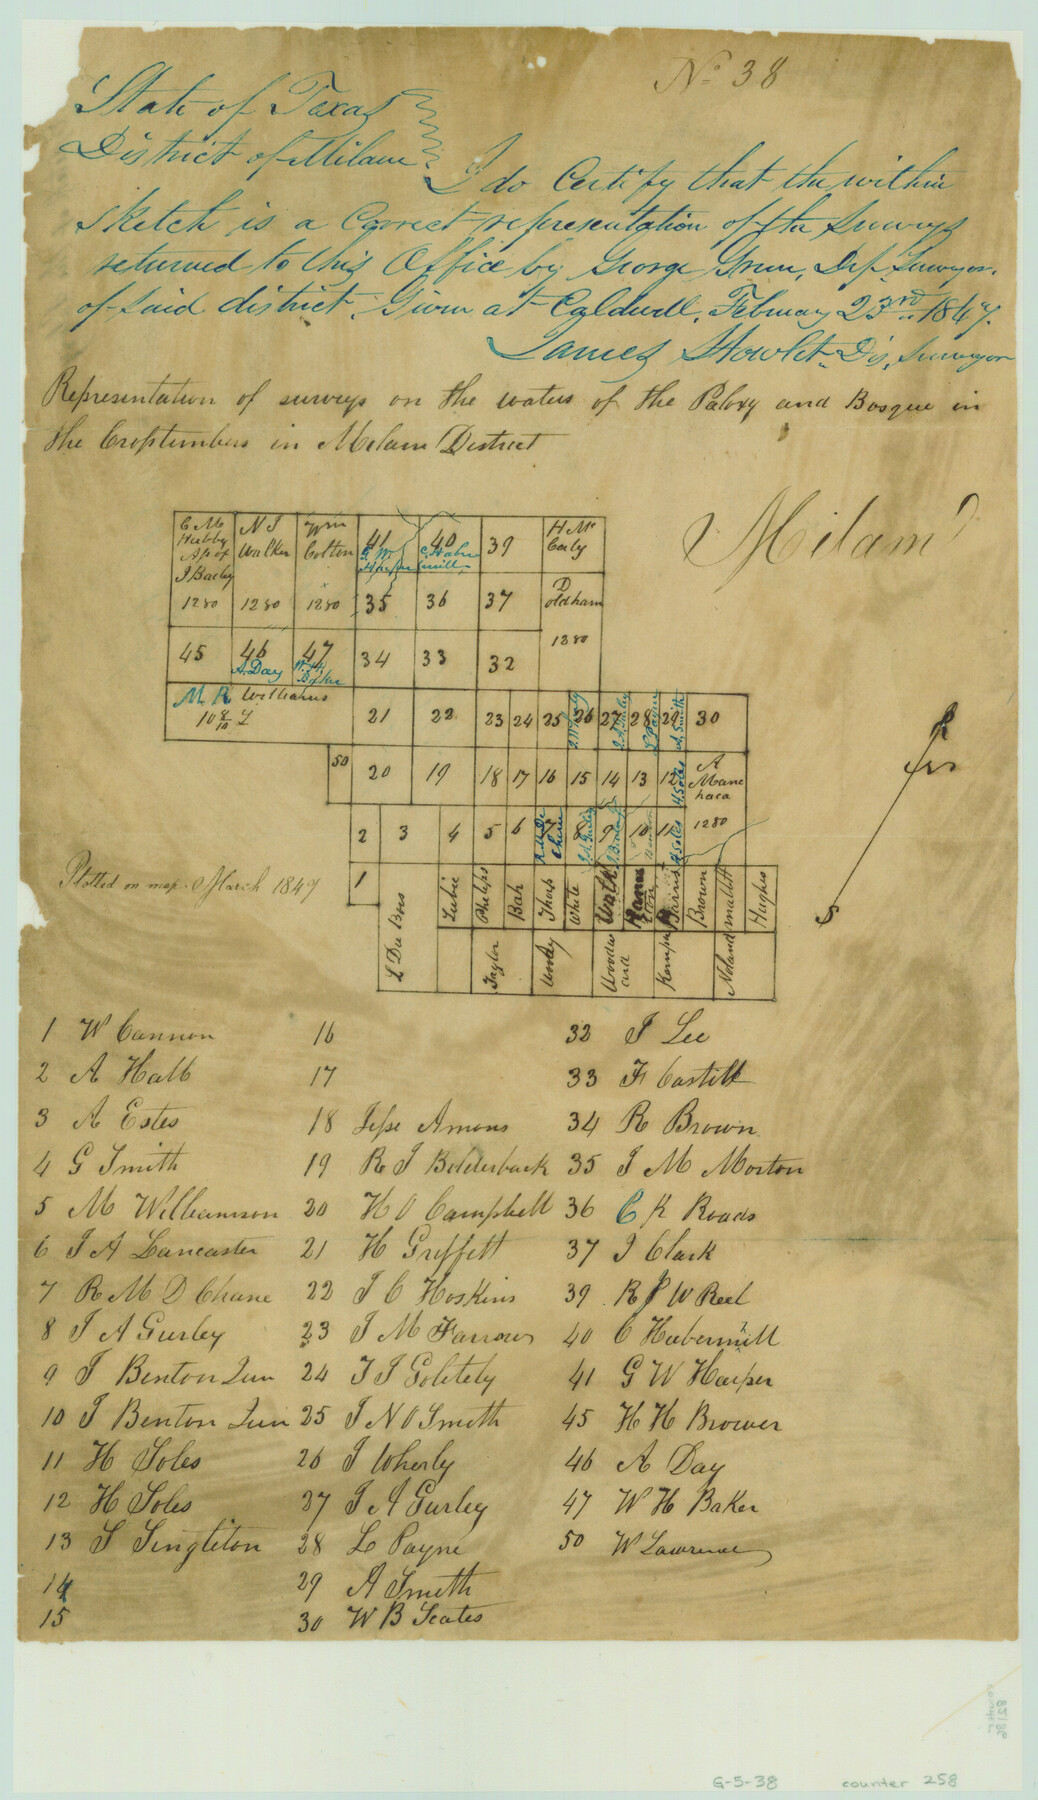 No 38
State of Texas
District of Milam
I do Certify that the within
sketch is a Correct representation of the Surveys
returned to this Office by George Green, Dep. Surveyor.
of said district. Given at Caldwell, February 23rd 1847.
James Howlet Dis. Surveyor
Representation of surveys on the waters of the Paloxy and Bosque in
the Crosstimbers in Milam District
Milam
C M Hubby As of J Bailey 1280
N J Walker 1280
Wm Colton 1280
41 G. W. Harper
40 C. Habermill
39
H Mc Carly
35 36 37
D Oldham 1280
45
46 A. Day
47 W. H. Baker
34 33 32
M R Williams
21 22 23 24 25 26 27 J. A. Gurley 28 L Payne 29 A. Smith 30
50 20 19 18 17 16 15 14 13 12 H. Soles
A Manchaca 1280
2 3 4 5 6 7 8 J. A. Gurley 9 10 11 H. Soles
Plotted on map March 1847
1
L Du Bois
Lubie Phelps Bah Tharp White Walk Barns Harris Brown Hughes
Taylor Woody Woodward Kemper Noland
N
S
1 W Cannon
2 A Hall
3 A Estes
4 G Smith
5 M Williamson
6 J A Lancaster
7 R M D Chane
8 J A Gurley
9 J Benton Jun
10 J Benton Jun
11 H Soles
12 H Soles
13 S Singleton
14
15
16
17
18 Jesse Amons
19 R J Belderback
20 H O Campbell
21 H Griffett
22 J C Hoskins
23 J M Farrow
24 J J Golitely
25 J N O Smith
26 J Wherly
27 J A Gurley
28 L Payne
29 A Smith
30 W B Scates
32 J Lee
33 F Castill
34 R Brown
35 J M Morton
36 C K Roads
37 J Clark
39 R J W Reel
40 C Habermill
41 G W Harper
45 H H Brower
46 A Day
47 W H Baker
50 W Lawrence
G-5-38
counter 258